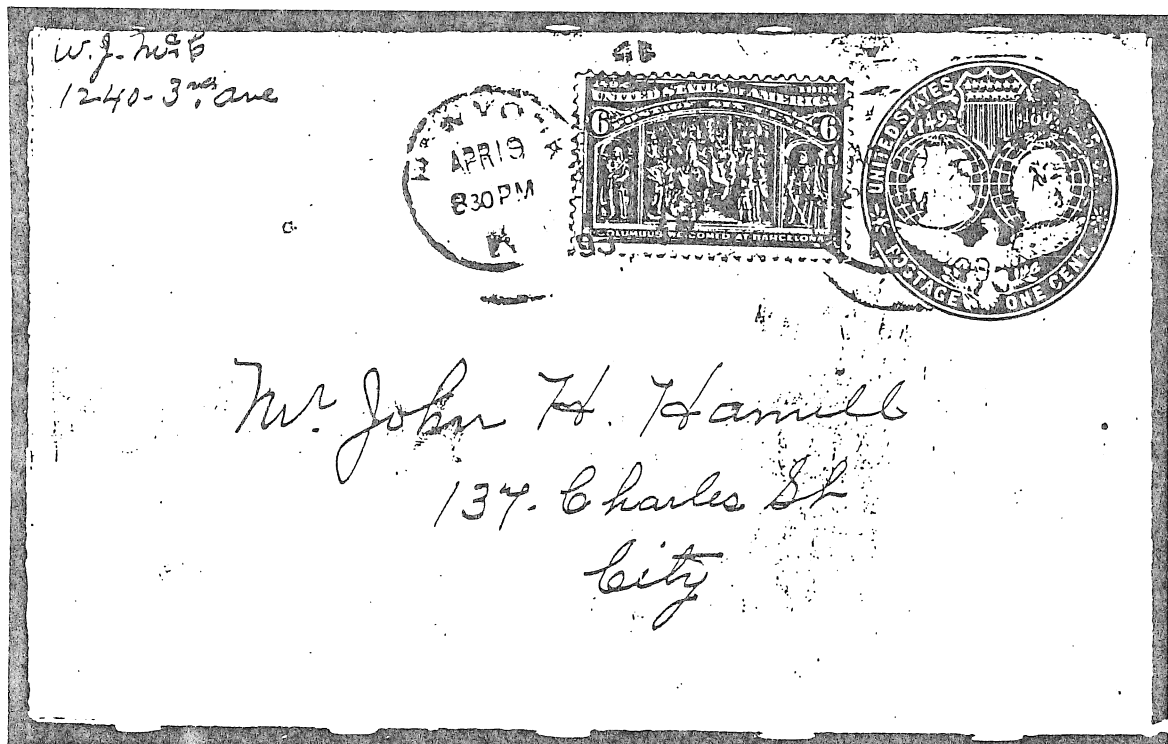 W. J. McC
1240 - 3rd. ave
N. Y.
APR 19
830 PM
93
UNITED STATES OF AMERICA
6 6
COLUMBUS WELCOMED AT BARCELONA
UNITED STATES
149
POSTAGE ONE CENT.
Mr. John H. Hamill
137. Charles St
City